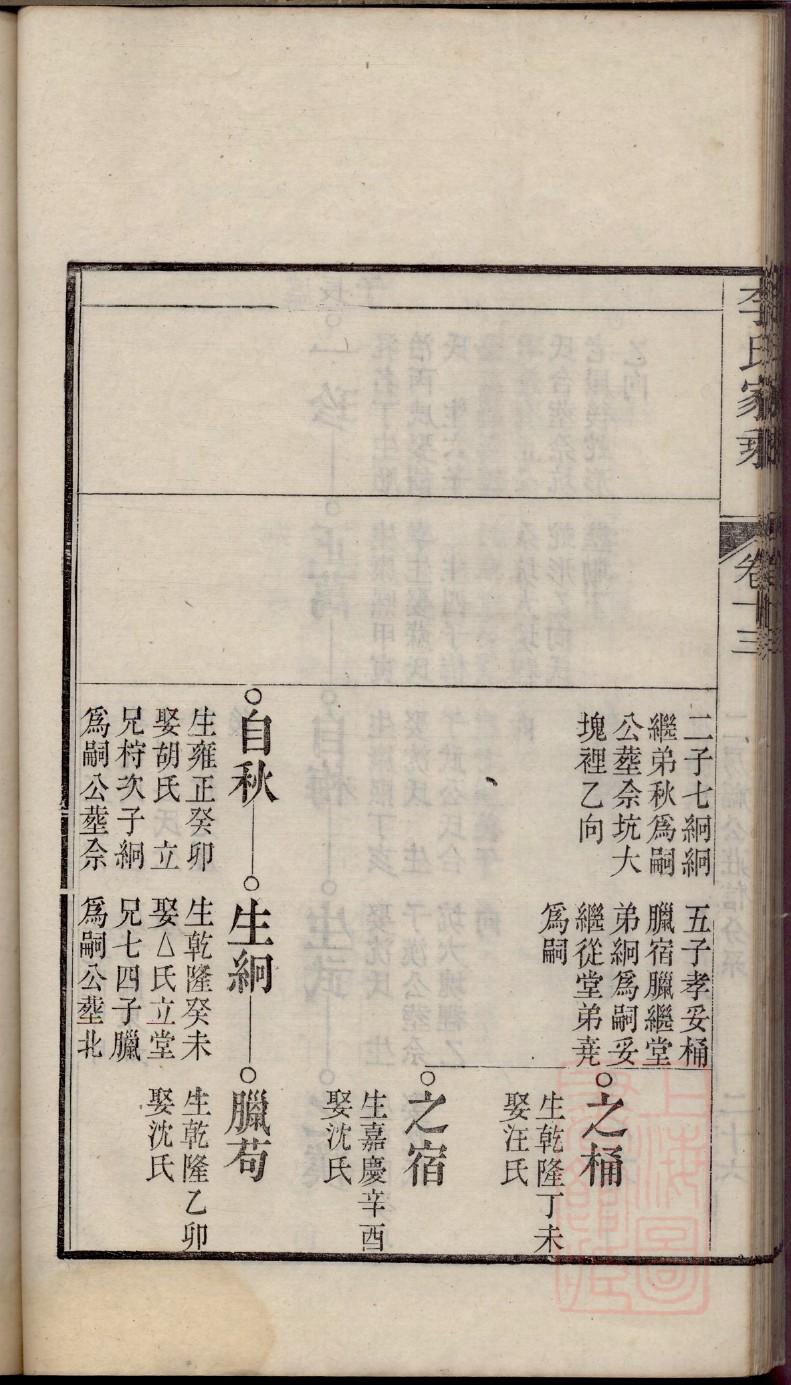 李氏家乘
卷十三
二子七絅絅
繼弟秋爲嗣
公塟佘坑大
塊裡乙向
五子孝妥桶
臘宿臘繼堂
弟絅爲嗣妥
繼從堂弟堯
爲嗣
之桶
生乾隆丁未
娶汪氏
之宿
生嘉慶辛酉
娶沈氏
自秋
生雍正癸卯
娶胡氏 立
兄梓次子絅
爲嗣公塟佘
生絅
生乾隆癸未
娶△氏立堂
兄七四子臘
爲嗣公塟北
臘苟
生乾隆乙卯
娶沈氏